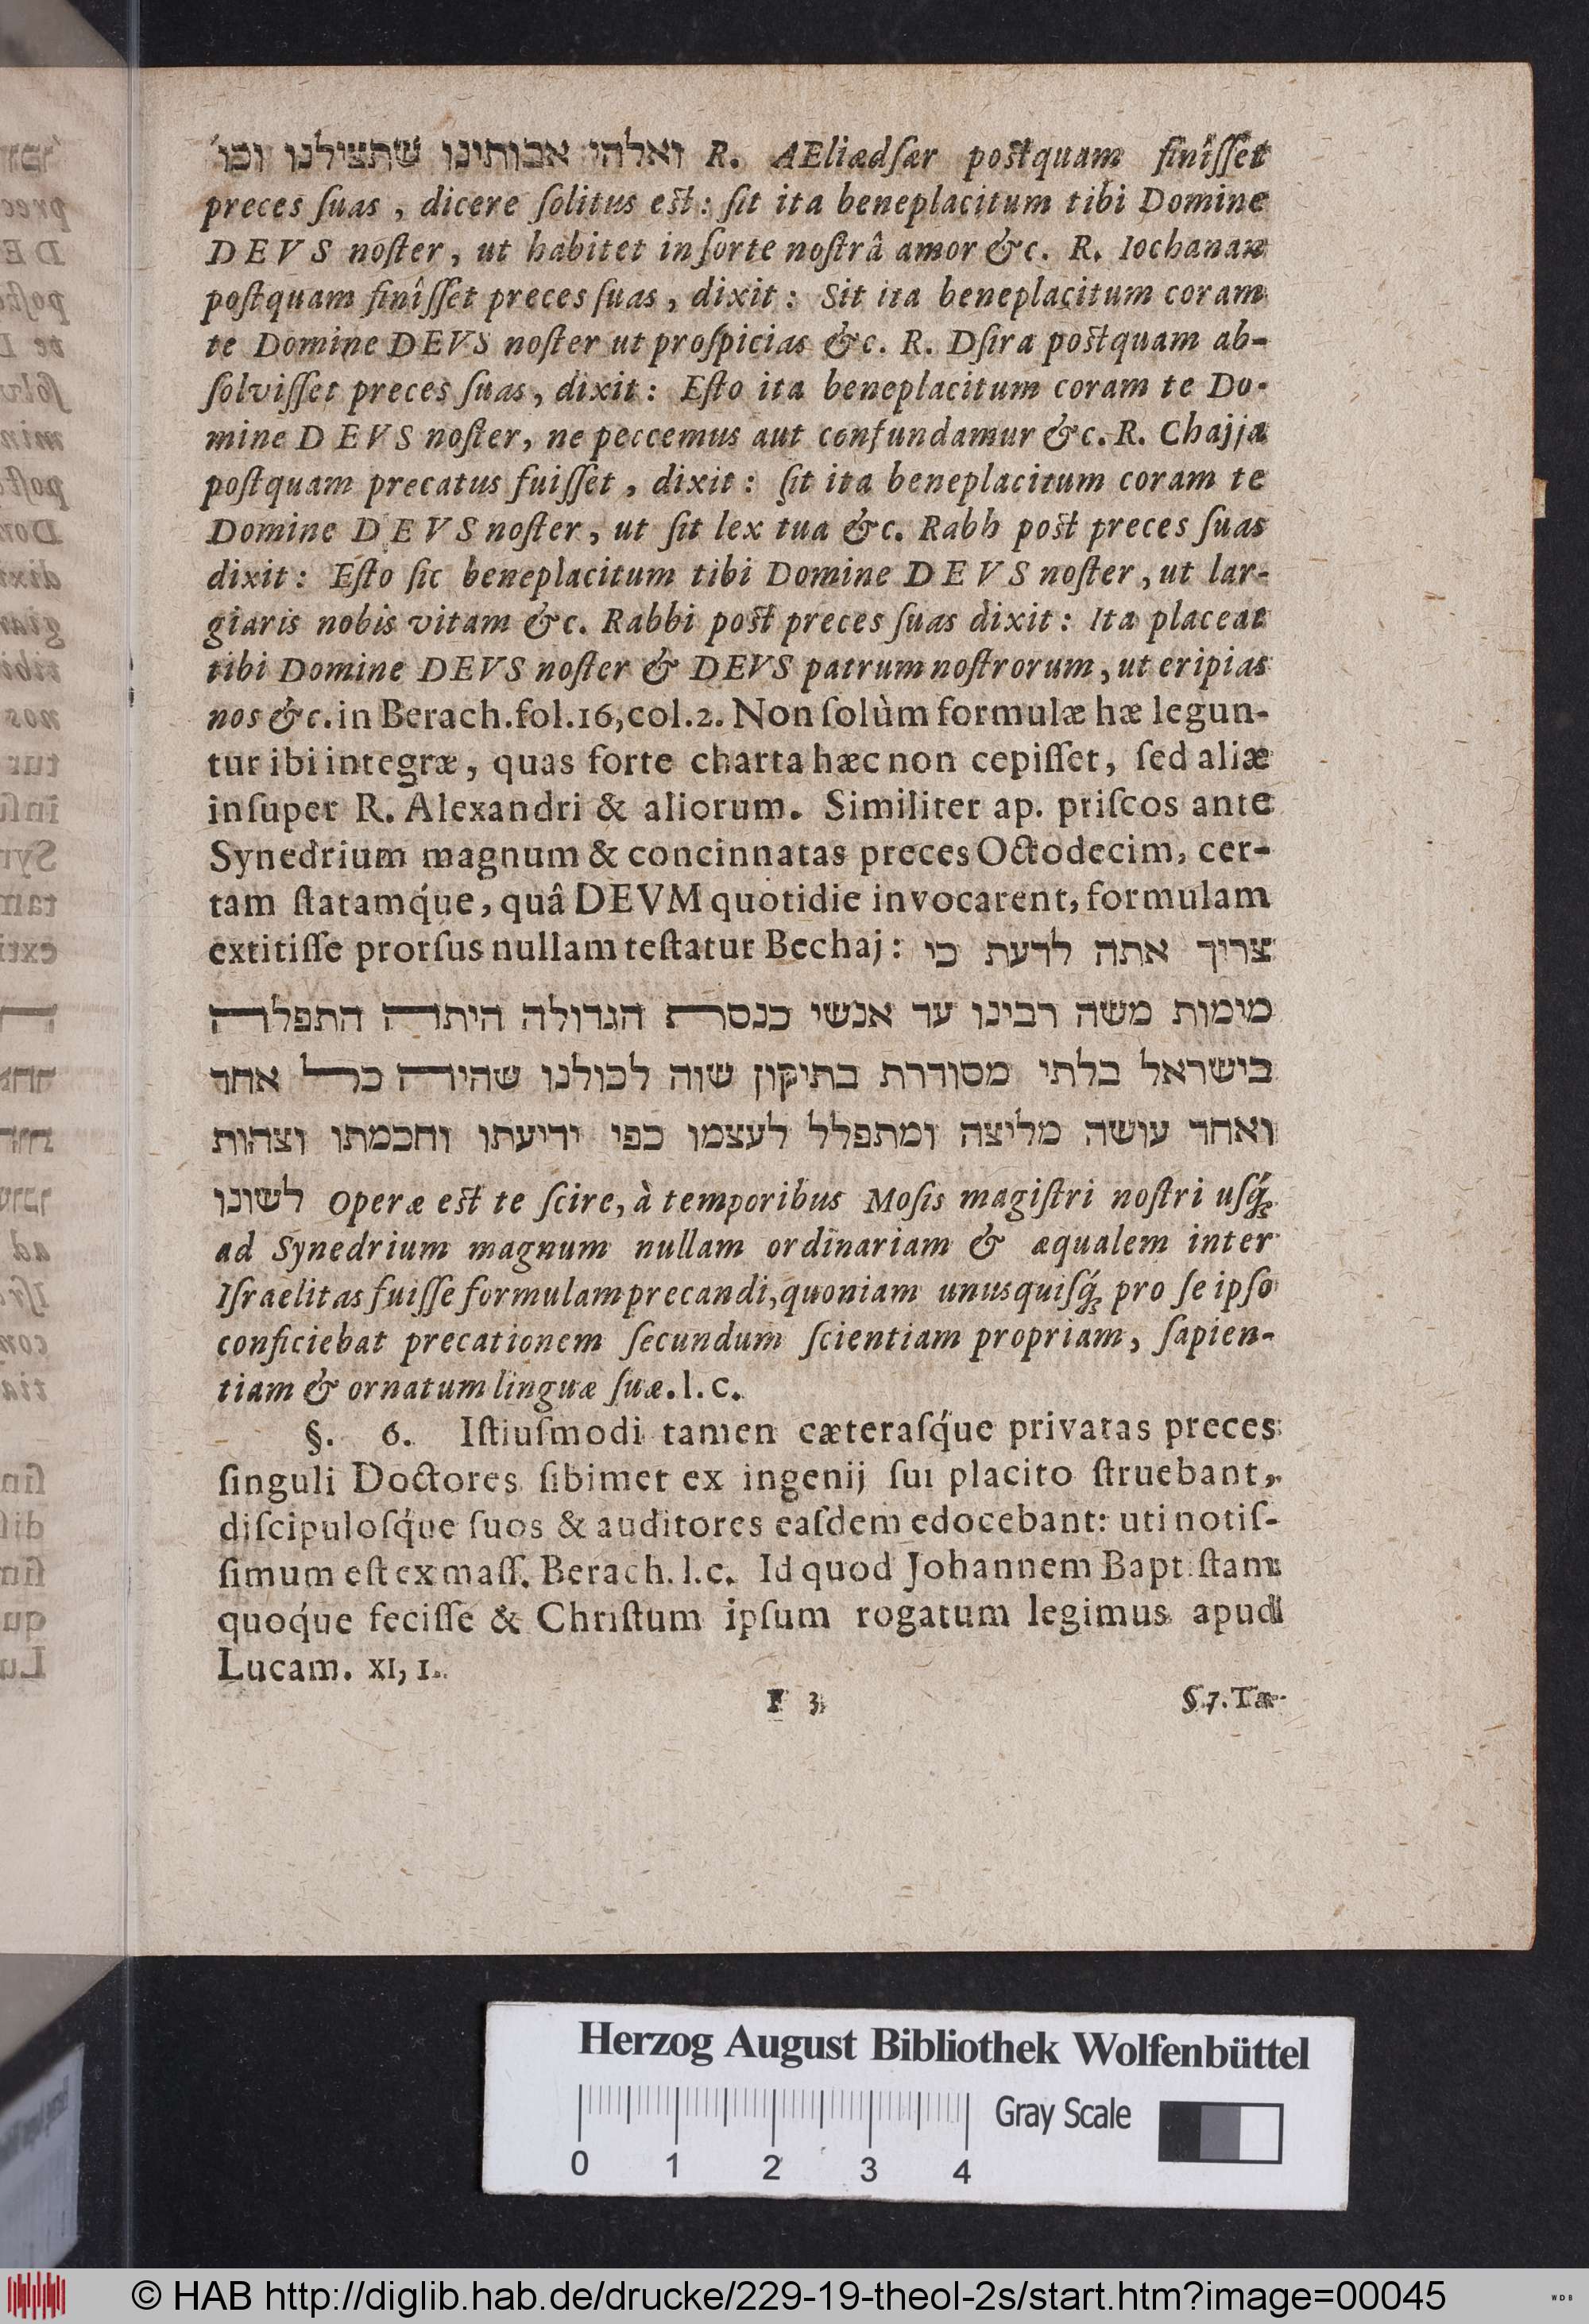 ואלהי אבותינו שתצילנו וכו׳ R. AEliædſær poſtquam finîſſet
preces ſuas, dicere ſolitus eſt: ſit ita beneplacitum tibi Domine
DEVS noſter, ut habitet in ſorte noſtrâ amor &c. R. Iochanan
poſtquam finîſſet preces ſuas, dixit: Sit ita beneplacitum coram
te Domine DEVS noſter ut proſpicias &c. R. Dſira poſtquam ab-
ſolviſſet preces ſuas, dixit: Eſto ita beneplacitum coram te Do-
mine DEVS noſter, ne peccemus aut confundamur &c. R. Chajja
poſtquam precatus fuiſſet, dixit: ſit ita beneplacitum coram te
Domine DEVS noſter, ut ſit lex tua &c. Rabh poſt preces ſuas
dixit: Eſto ſic beneplacitum tibi Domine DEVS noſter, ut lar-
giaris nobis vitam &c. Rabbi poſt preces ſuas dixit: Ita placeat
tibi Domine DEVS noſter & DEVS patrum noſtrorum, ut eripias
nos &c. in Berach. fol. 16, col. 2. Non ſolùm formulæ hæ legun-
tur ibi integræ, quas forte charta hæc non cepiſſet, ſed aliæ
inſuper R. Alexandri & aliorum. Similiter ap. priſcos ante
Synedrium magnum & concinnatas preces Octodecim, cer-
tam ſtatamq́ue, quâ DEVM quotidie invocarent, formulam
extitiſſe prorſus nullam teſtatur Bechaj: צרוך אתה לדעת כי
מימות משה רבינו עד אנשי כנסת הגדולה היתה התפלה
בישראל בלתי מסודרת בתיקון שוה לכולנו שהיה כל אחד
ואחד עושה מליצה ומתפלל לעצמו כפי ידיעתו וחכמתו וצהות
לשונו Operæ eſt te ſcire, à temporibus Moſis magiſtri noſtri uſq́;
ad Synedrium magnum nullam ordinariam & æqualem inter
Iſraelitas fuiſſe formulam precandi, quoniam unusquiſq́; pro ſe ipſo
conficiebat precationem ſecundum ſcientiam propriam, ſapien-
tiam & ornatum linguæ ſuæ. l. c.
§. 6. Iſtiuſmodi tamen cæteraſq́ue privatas preces
ſinguli Doctores ſibimet ex ingenij ſui placito ſtruebant,
diſcipuloſq́ue ſuos & auditores eaſdem edocebant: uti notiſ-
ſimum eſt ex maſſ. Berach. l. c. Id quod Johannem Baptiſtam
quoq́ue feciſſe & Chriſtum ipſum rogatum legimus apud
Lucam. XI, 1.
F 3 §. 7. Tæ-
Herzog August Bibliothek Wolfenbüttel
Gray Scale
0 1 2 3 4
© HAB http://diglib.hab.de/drucke/229-19-theol-2s/start.htm?image=00045